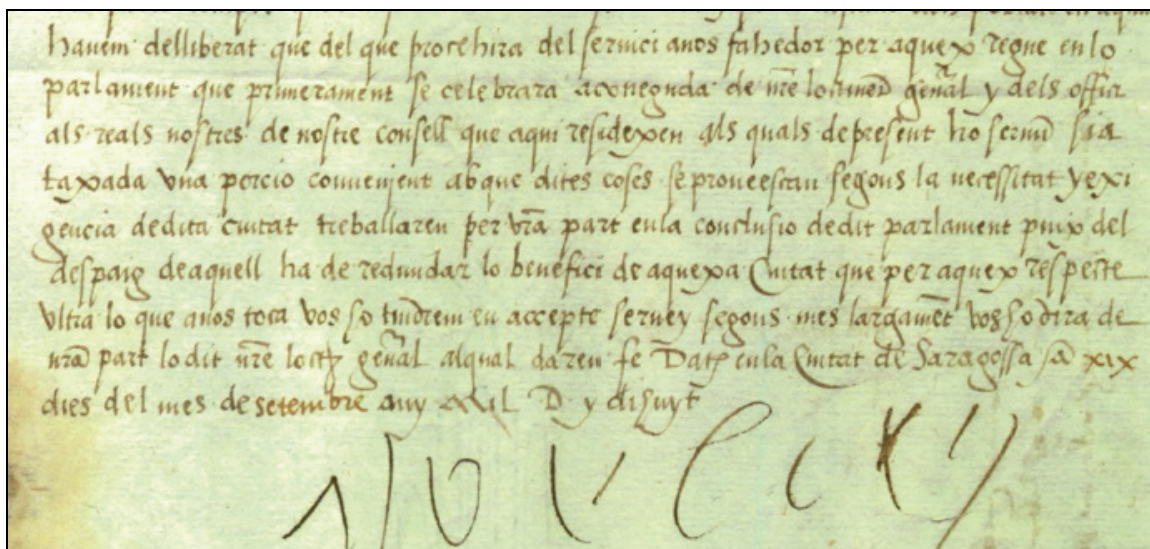 havem delliberat que del que procehira del servici anos fahedor per aquex regne en lo
parlament que primerament se celebrara a coneguda de nre loctinent gñal y dels offici
als reals nostres de nostre consell que aqui residexen als quals de present ho scrivim sia
taxada una porcio convenient ab que dites coses se proveescan segons la necessitat y exi
gencia de dita ciutat treballareu per vra part en la conclusio de dit parlament puix del
despaig de aquell ha de redundar lo benefici de aquexa Ciutat que per aquex respecte
ultra lo que a nos toca vos ho tindrem en accepte servey segons mes largament vos ho dira de
nra part lo dit nre loct gñal al qual dareu fe Dat en la Ciutat de Saragossa a xix
dies del mes de setembre any Mil D y dihuyt